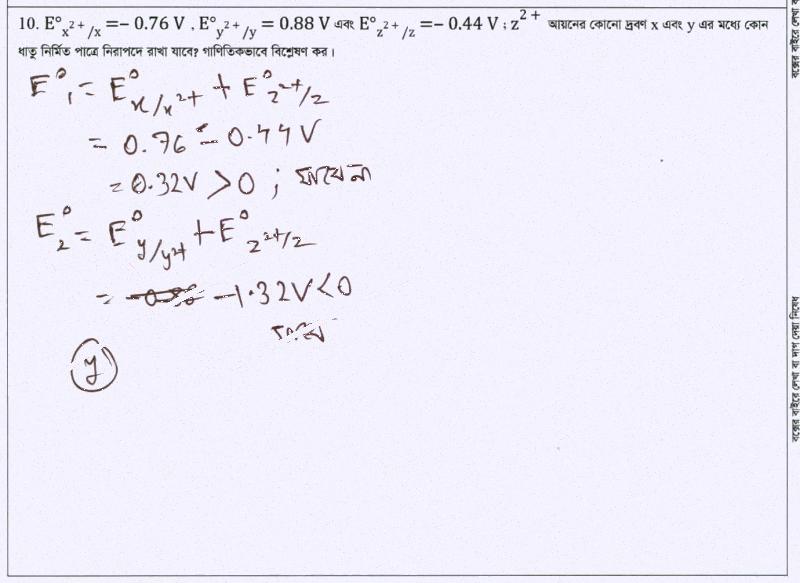 10. E°ₓ²⁺/ₓ =− 0.76 V , E°y²⁺/y = 0.88 V এবং E°z²⁺/z =− 0.44 V ; z²⁺ আয়নের কোনো দ্রবণ x এবং y এর মধ্যে কোন
ধাতু নির্মিত পাত্রে নিরাপদে রাখা যাবে? গাণিতিকভাবে বিশ্লেষণ কর।
E°₁ = E°x/x²⁺ + E°z²⁺/z
= 0.76 − 0.44 V
= 0.32V > 0 ; যাবেনা
E°₂ = E°y/y²⁺ + E°z²⁺/z
= −1.32V < 0
যাবে
y
বক্সের বাইরে লেখা ব
বক্সের বাইরে লেখা বা দাগ দেয়া নিষেধ